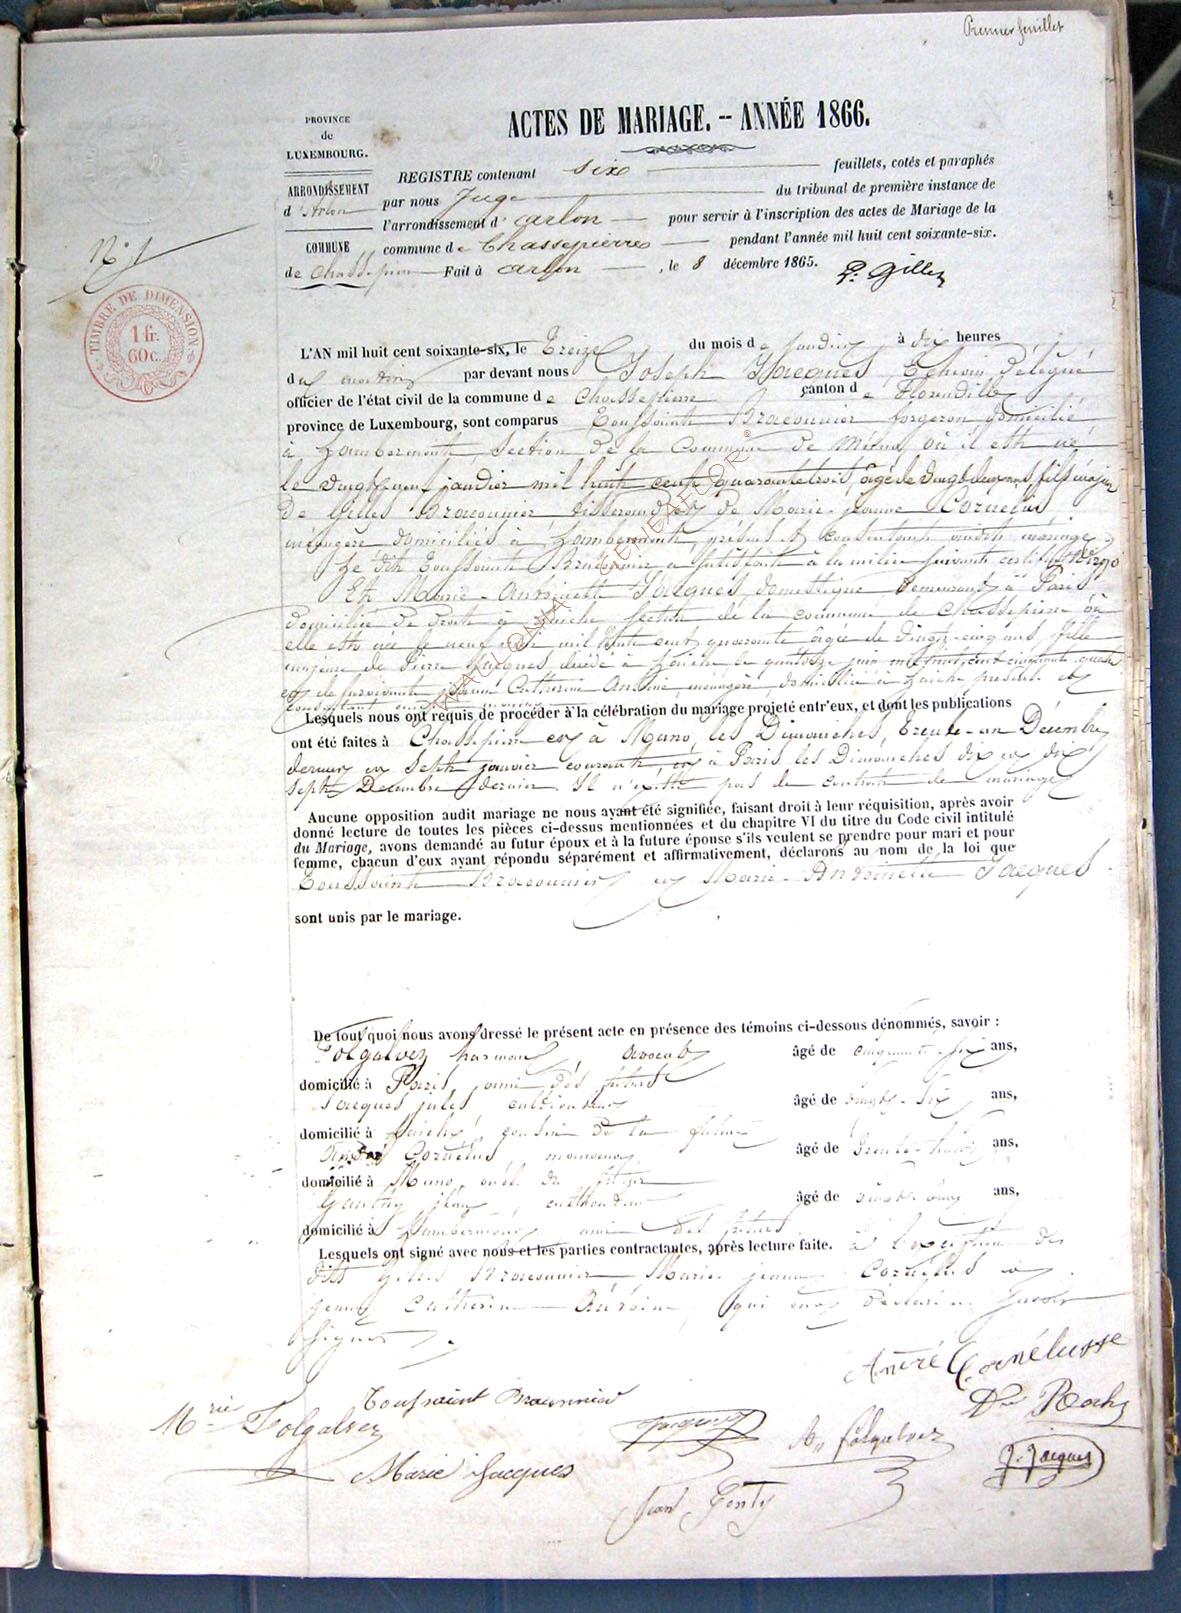 Premier feuillet
PROVINCE
de
LUXEMBOURG.
ARRONDISSEMENT
d'Arlon
COMMUNE
de Chassepierre
N° 1
TIMBRE DE DIMENSION
1 fr.
60 c.
ACTES DE MARIAGE. -- ANNÉE 1866.
REGISTRE contenant six feuillets, cotés et paraphés
par nous Juge du tribunal de première instance de
l'arrondissement d' arlon pour servir à l'inscription des actes de Mariage de la
commune de Chassepierre pendant l'année mil huit cent soixante-six.
Fait à arlon, le 8 décembre 1865.
L'AN mil huit cent soixante-six, le Treize du mois de janvier à dix heures
du matin par devant nous Joseph Jacques, Echevin délégué
officier de l'état civil de la commune de Chassepierre canton de Florenville
province de Luxembourg, sont comparus Toussaint Braconnier forgeron domicilié
à Lambermont, section de la Commune de Muno, où il est né
le vingt neuf janvier mil huit cent quarante trois, âgé de vingt deux ans, fils majeur
de Gilles Braconnier tisserand et de Marie-jeanne Cornelus
ménagère domiciliés à Lambermont, présents et consentants audit mariage
Le dit Toussaint Braconnier a satisfait à la milice suivant certificat
Et Marie-Antoinette Jacques, domestique demeurant à Paris
domiciliée de droit à Laiche section de la commune de Chassepierre où
elle est née le neuf mil huit cent quarante âgée de vingt-cinq ans, fille
majeure de Pierre Jacques, décédé à Laiche le quatorze juin mil huit cent cinquante quatre
et de survivante jeanne Catherine Antoine, ménagère, domiciliée à Laiche présente et
consentant audit mariage
Lesquels nous ont requis de procéder à la célébration du mariage projeté entr'eux, et dont les publications
ont été faites à Chassepierre et à Muno, les Dimanches, trente-un Décembre
dernier et sept janvier courant, et à Paris les Dimanches dix et dix
sept Décembre dernier. Il n'existe pas de contrat de mariage
Aucune opposition audit mariage ne nous ayant été signifiée, faisant droit à leur réquisition, après avoir
donné lecture de toutes les pièces ci-dessus mentionnées et du chapitre VI du titre du Code civil intitulé
du Mariage, avons demandé au futur époux et à la future épouse s'ils veulent se prendre pour mari et pour
femme, chacun d'eux ayant répondu séparément et affirmativement, déclarons au nom de la loi que
Toussaint Braconnier et Marie-Antoinette Jacques
sont unis par le mariage.
De tout quoi nous avons dressé le présent acte en présence des témoins ci-dessous dénommés, savoir :
Folgalvez avocat âgé de cinquante-six ans,
domicilié à Paris, ami des futurs
Jacques jules, cultivateur âgé de vingt-six ans,
domicilié à Laiche, cousin de la future
André Cornelus, âgé de trente-huit ans,
domicilié à Muno, oncle du futur
jean, cultivateur âgé de vingt ans,
domicilié à Lambermont, ami des futurs
Lesquels ont signé avec nous et les parties contractantes, après lecture faite. à l'exception des
dits Gilles Braconnier Marie jeanne Cornelus et
jeanne Catherine Antoine, qui ont déclaré ne savoir
signer.
André Cornélusse
Toussaint Braconnier
Mrie Folgalvez
Jacques
Folgalvez
J. Jacques
Marie Jacques
Jean Gonty